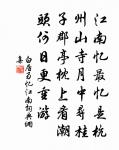 江南忆最忆是杭
州山寺月中寻桂
子郡亭枕上看潮
头何日更重游
白居易忆江南词其二